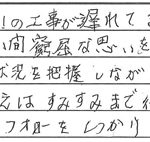 の工事が遅れて
間窮屈な思いを
状況を把握しなが
えは すみずみまで
フォローを しっかり